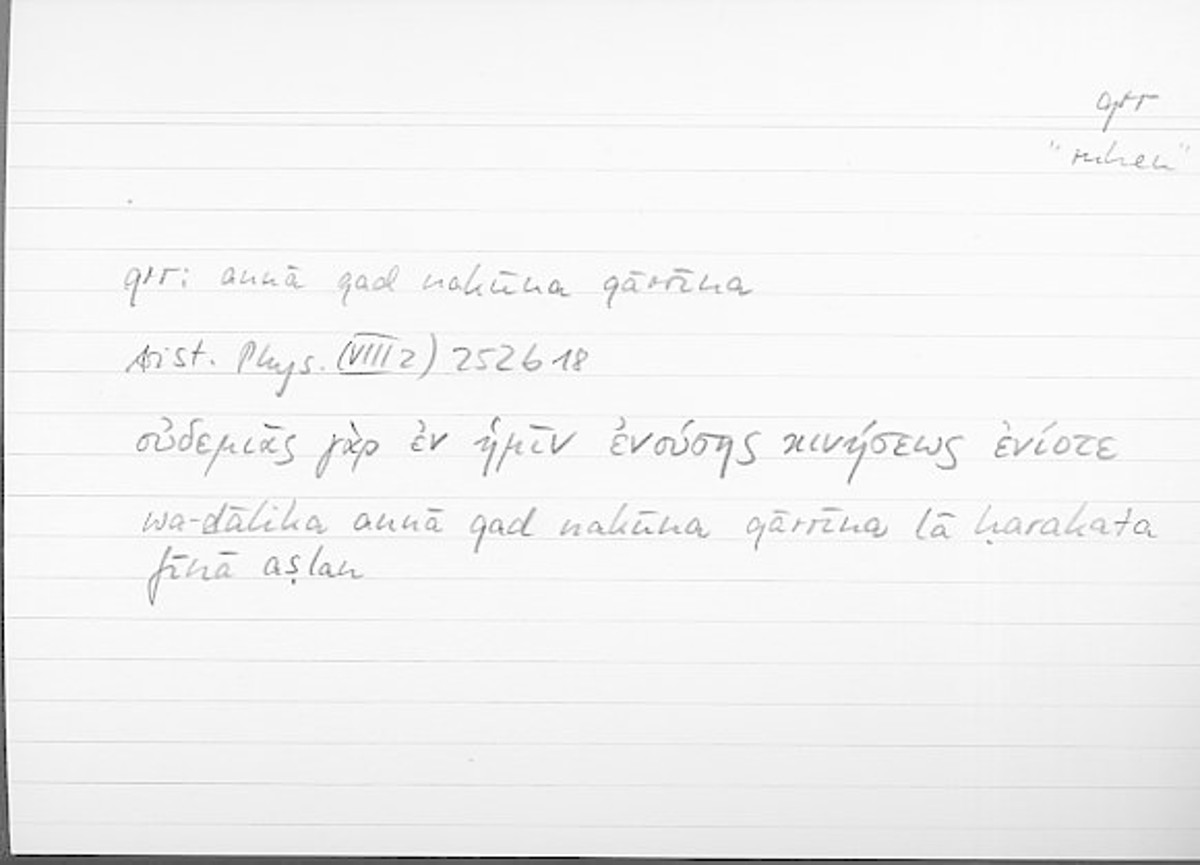 qrr
"ruhen"
qrr: annā qad nakūna qārrīna
Arist. Phys. (VIII 2) 252b18
οὐδεμιᾶς γὰρ ἐν ἡμῖν ἐνούσης κινήσεως ἐνίοτε
wa-ḏālika annā qad nakūna qārrīna lā ḥarakata
fīnā aṣlan